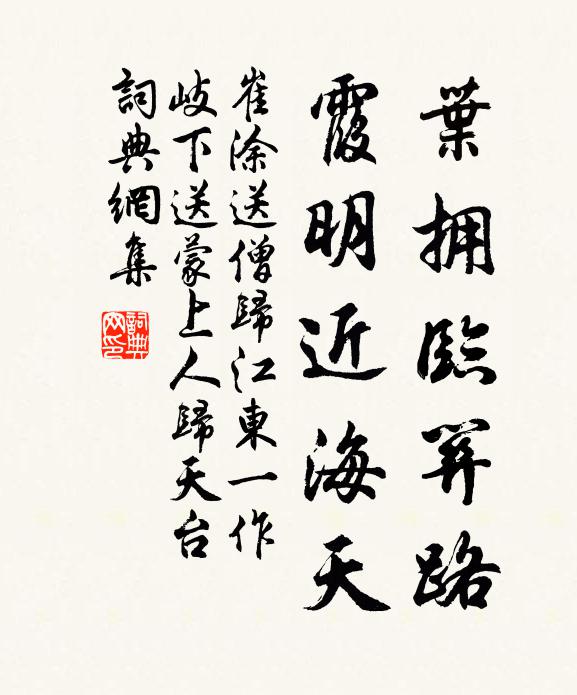 葉擁臨關路
霞明近海天
崔涂送僧歸江東一作
岐下送蒙上人歸天台
詞典網集
詞典网印